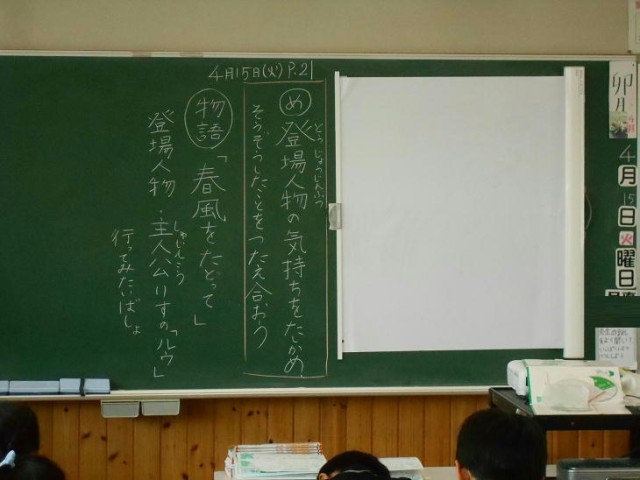 4月15日(火) P.21
め 登場人物の気持ちをたしかめ
とうじょうじんぶつ
そうぞうしたことをつたえ合おう
物語「春風をたどって」
登場人物・主人公りすの「ルウ」
しゅじんこう
行ってみたいばしょ
卯月
4月
15日
火曜日